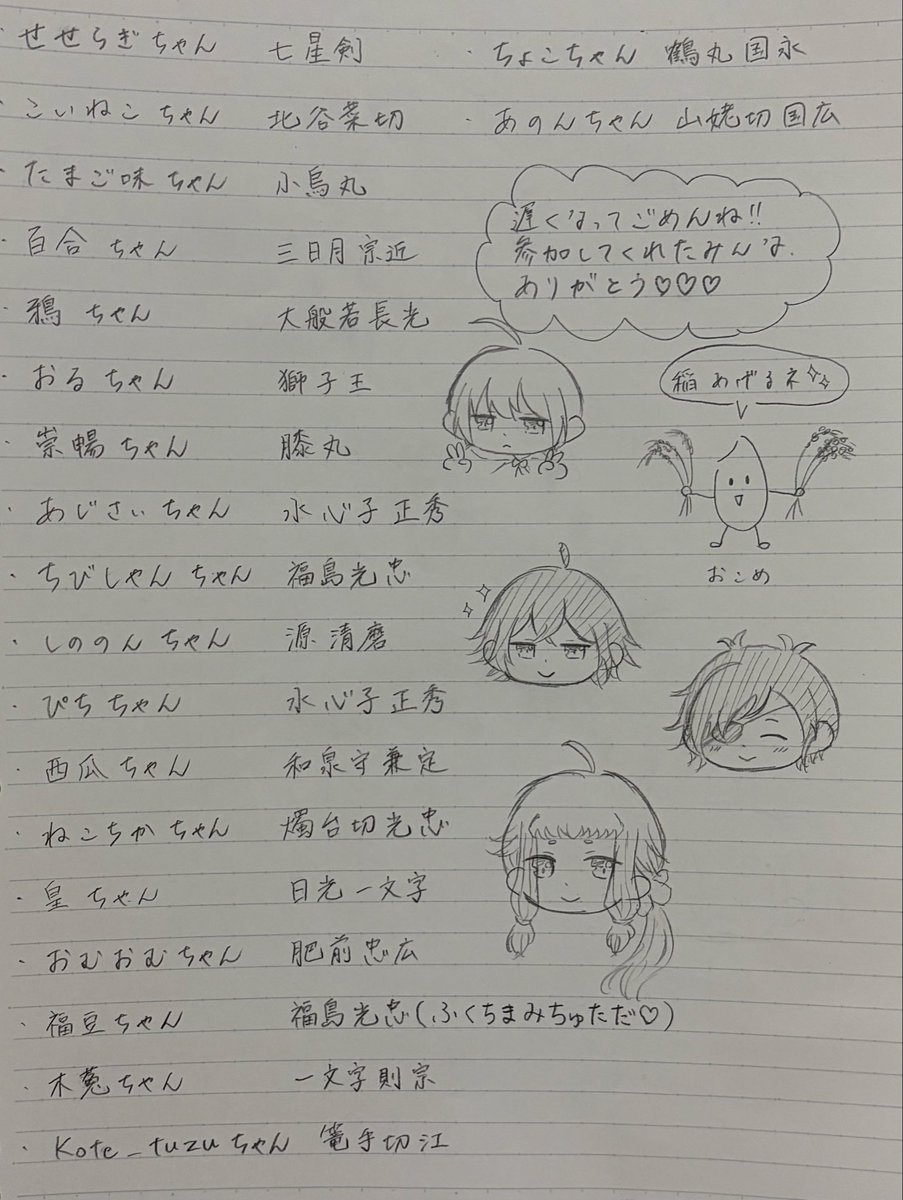 ・せせらぎちゃん 七星剣
・こいねこちゃん 北谷菜切
・たまご味ちゃん 小烏丸
・百合ちゃん 三日月宗近
・鴉ちゃん 大般若長光
・おるちゃん 獅子王
・崇暢ちゃん 膝丸
・あじさいちゃん 水心子正秀
・ちびしゃんちゃん 福島光忠
・しののんちゃん 源清磨
・ぴちちゃん 水心子正秀
・西瓜ちゃん 和泉守兼定
・ねこちかちゃん 燭台切光忠
・皇ちゃん 日光一文字
・おむおむちゃん 肥前忠広
・福豆ちゃん 福島光忠(ふくちまみちゅただ♡)
・木菟ちゃん 一文字則宗
・Kote_tuzuちゃん 篭手切江
・ちょこちゃん 鶴丸国永
・あのんちゃん 山姥切国広
遅くなってごめんね!!
参加してくれたみんな
ありがとう♡♡♡
稲あげるネ
おこめ